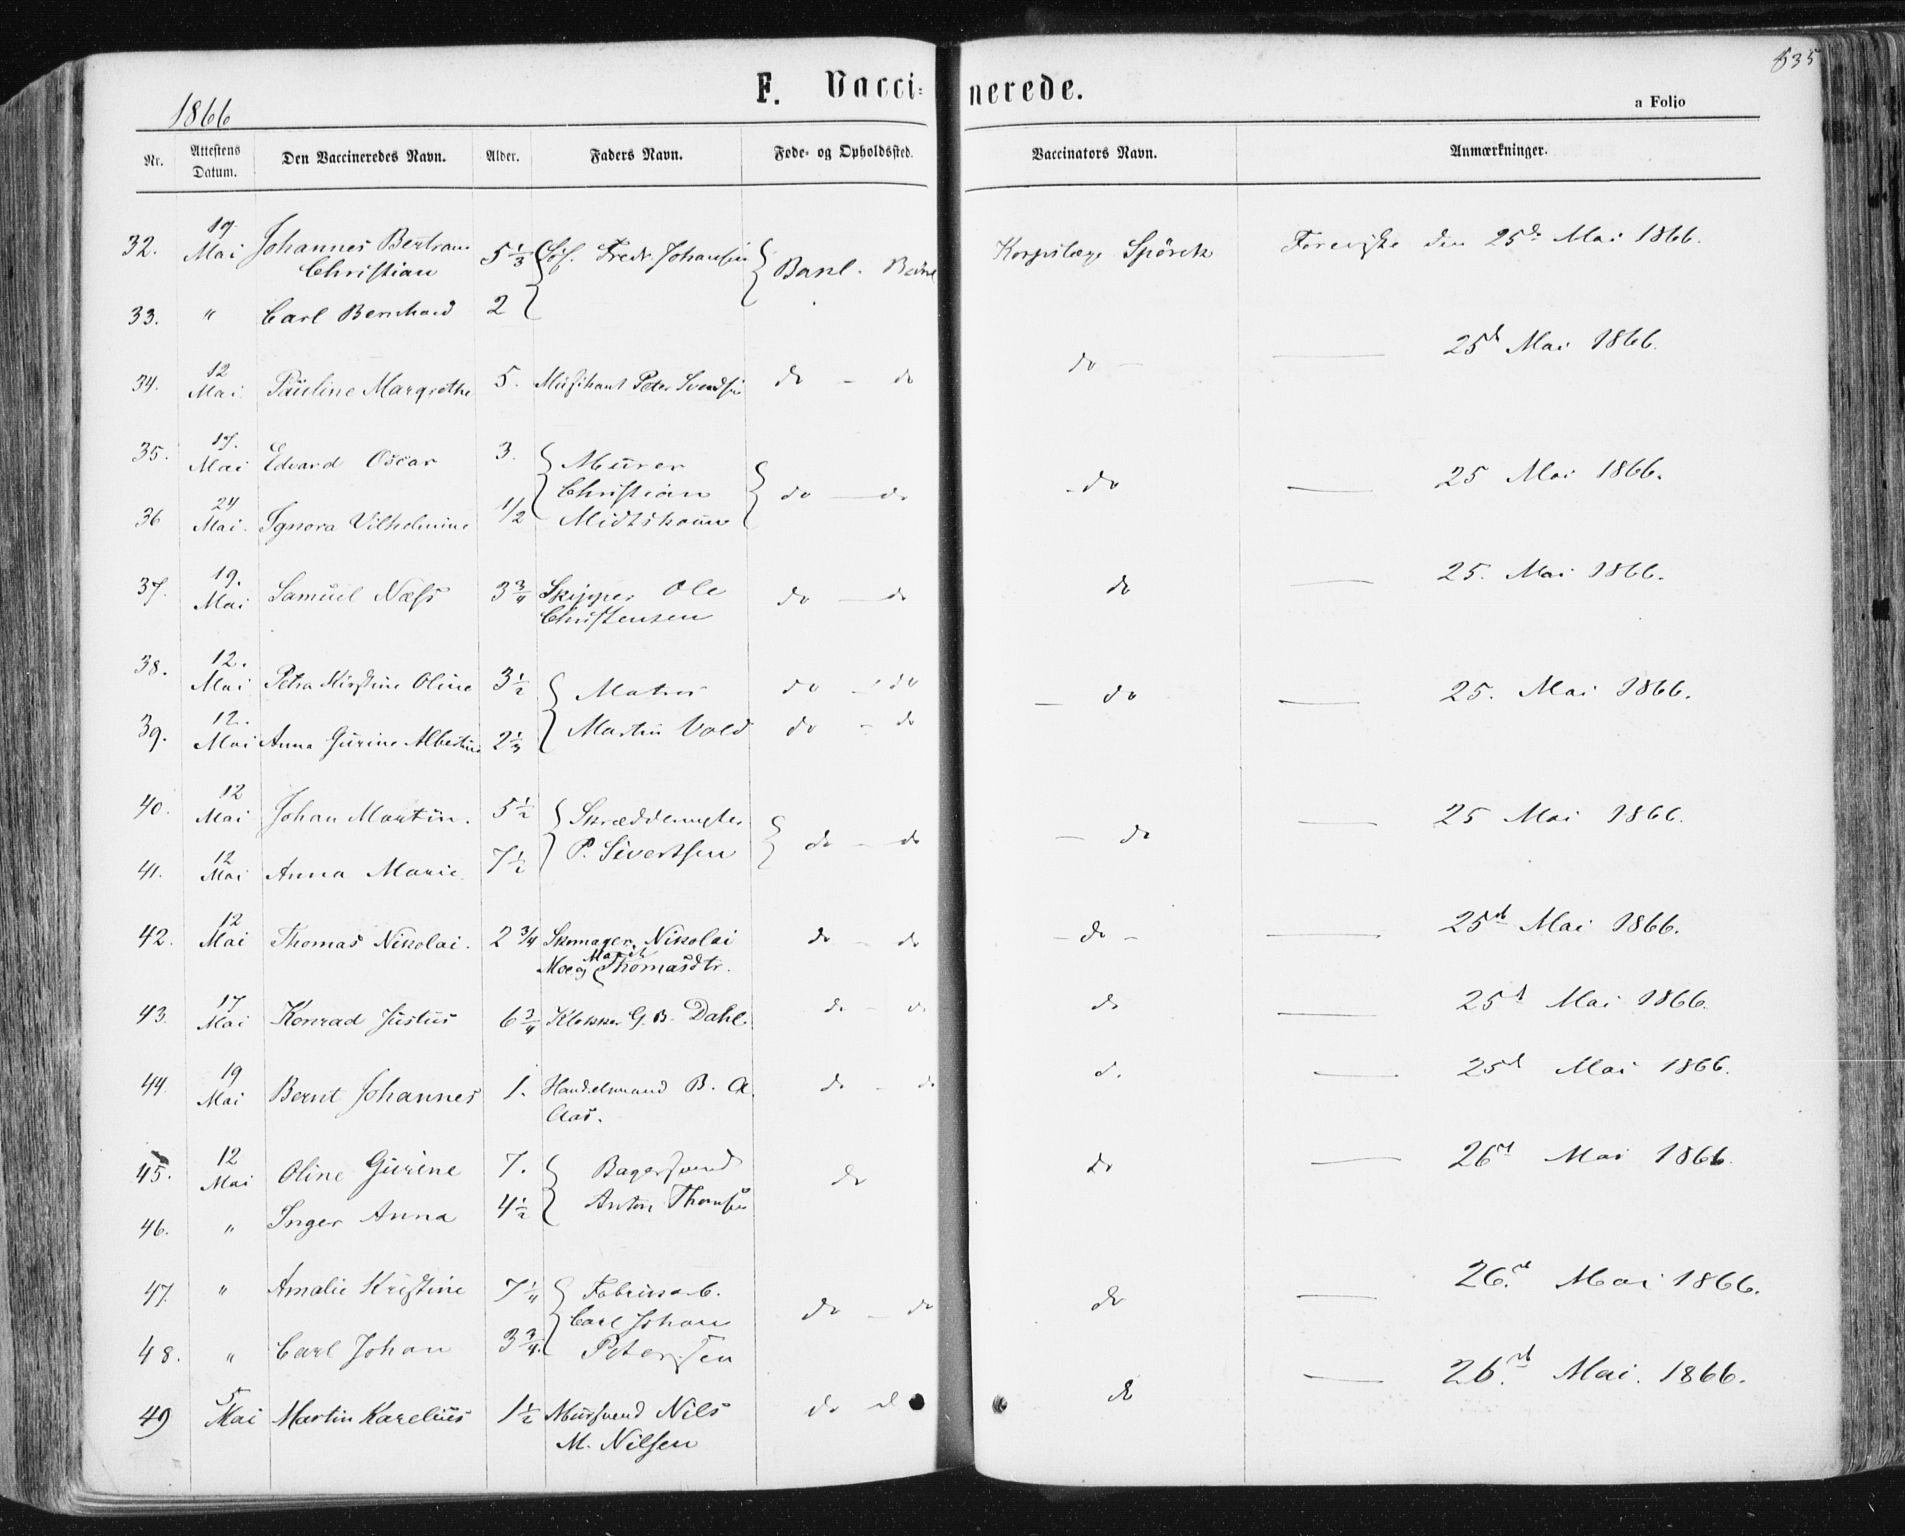 535
F. Vaccinerede.
1866
a Folio
Nr. Attestens Datum. Den Vaccineredes Navn. Alder. Faders Navn. Føde- og Opholdssted. Vaccinators Navn. Anmærkninger.
32. 19 Mai Johannes Bertram Christian 5 1/3 Fredr. Johansen Bakl. Korpslæge Spörck Foreviste den 25de Mai 1866.
33. " Carl Bernhard 2
34. 12 Mai Pauline Margrethe 5. Musikant Peter Svendsen do - do do - — 25de Mai 1866.
35. 17. Mai Edvard Oscar 3. Murer Christian Midtshaun do — do - do — 25 Mai 1866.
36 24 Mai. Ignora Vilhelmine 1/2
37. 19. Mai Samuel Næss 3 3/4 Skipper Ole Christensen do — do do — 25. Mai 1866.
38. 12. Mai Petra Kirstine Oline 3 1/2 Matros Martin Vold do - do — do — 25. Mai 1866.
39. 12. Mai Anna Gurine Albertine 2 1/3 do - do
40. 12 Mai Johan Martin. 5 1/2 Skræddermester P. Sivertsen do - do — do — 25 Mai 1866.
41. 12 Mai Anna Marie 7 1/2
42. 12 Mai Thomas Nikolai. 2 3/4 Skomager Nikolai Moe og Marit Thomasdtr. do - do - do - — 25de Mai 1866.
43. 17 Mai Konrad Justus 6 3/4 Klokker G. B. Dahl do - do do — 25d Mai 1866.
44. 19 Mai Bernt Johannes 1. Handelsmand B. A. Aas. do - do d. — 25d Mai 1866.
45. 12 Mai Oline Gurine 7. Bagersvend Anton Thomsen do do — 26de Mai 1866.
46. " Inger Anna 4 1/2
47. " Amalie Kristine 7 1/4 Fabriksarb. Carl Johan Petersen do - do do — 26.de Mai 1866.
48. " Carl Johan 3 3/4.
49 5 Mai Martin Karelius 1 1/2 Mursvend Nils M. Nilsen do d do — 26.de Mai. 1866.